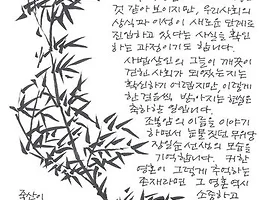 것 같아 보이지만, 우리사회의
상식과 이성이 새로운 단계로
진입하고 있다는 사실을 확인
하는 과정이기도 합니다.
사법살인의 그늘이 깨끗이
걷힌 사회가 되었는지는
확신하기 어렵지만, 이렇게
한 걸음씩 밝아지는 현실은
축하할 일입니다.
조봉암의 이름을 이야기
하면서 눈물짓던 무위당
장일순 선생의 모습을
기억합니다. 귀한
영혼이 그렇게 추억하는
존재라면 그 영혼 역시
소중하고